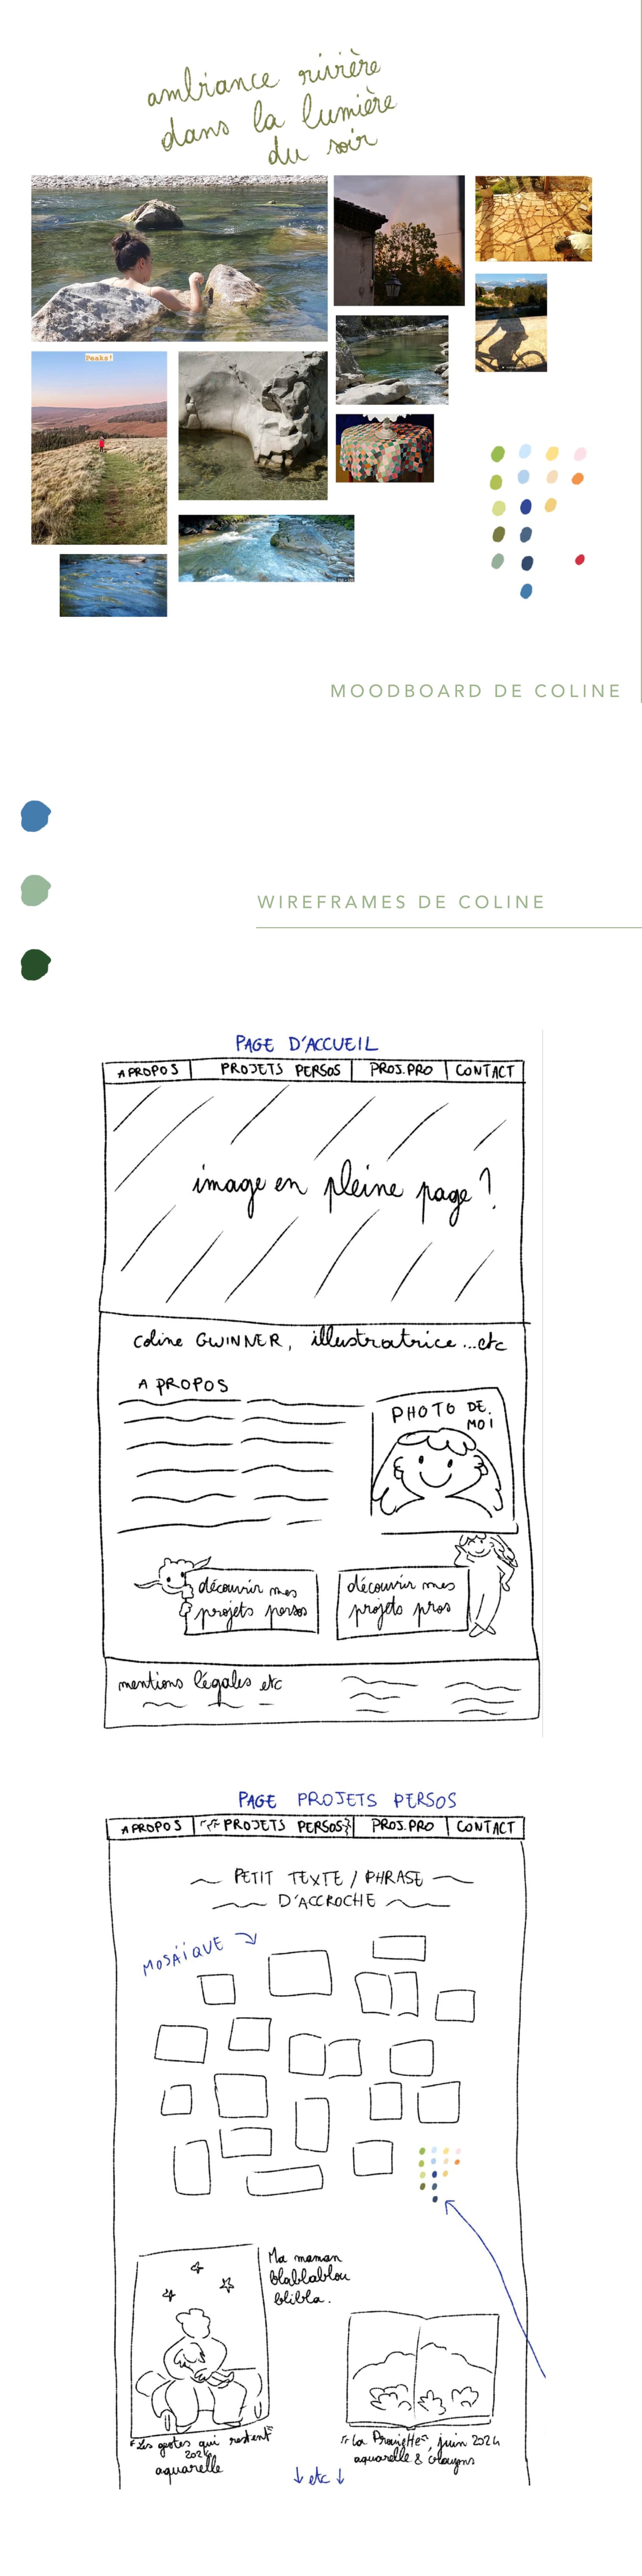 ambiance rivière
dans la lumière
du soir
Peaks!
MOODBOARD DE COLINE
WIREFRAMES DE COLINE
PAGE D'ACCUEIL
A PROPOS PROJETS PERSOS PROJ.PRO CONTACT
image en pleine page ?
Coline GWINNER, illustratrice...etc
A PROPOS
PHOTO DE
MOI
découvrir mes
projets persos
découvrir mes
projets pros
mentions légales etc
PAGE PROJETS PERSOS
A PROPOS PROJETS PERSOS PROJ.PRO CONTACT
PETIT TEXTE / PHRASE
D'ACCROCHE
MOSAÏQUE
Ma maman
blablablou
blibla.
"Les gestes qui restent"
2024
aquarelle
"La Prairiette", juin 2024
aquarelle & crayons
↓ etc ↓